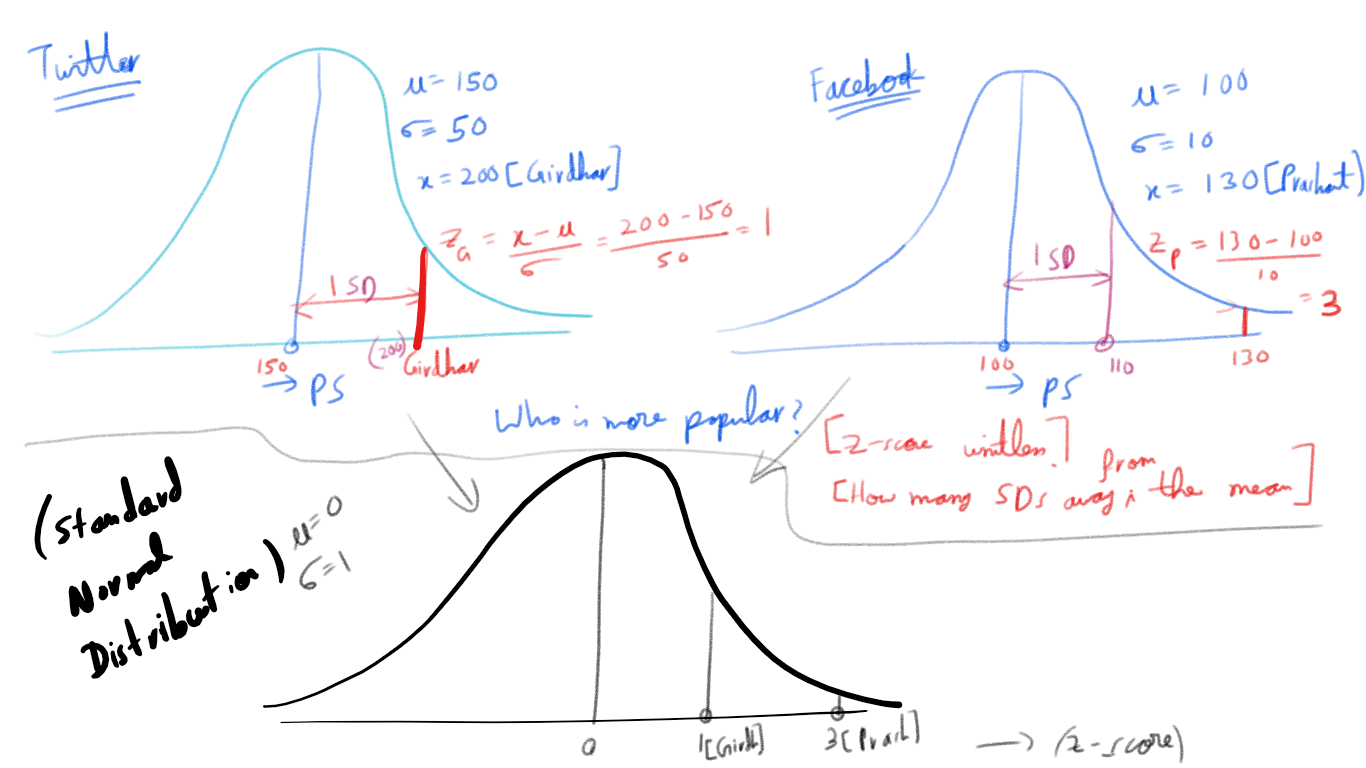 Twitter
μ = 150
σ = 50
x = 200 [Girdhar]
Z_G = (x - μ)/σ = (200 - 150)/50 = 1
1 SD
150
(200)
Girdhar
→ PS
Facebook
μ = 100
σ = 10
x = 130 [Prashant)
Z_p = (130 - 100)/10
= 3
1 SD
100
110
130
→ PS
Who is more popular?
[Z-score unitless]
from
[How many SDs away is the mean]
(Standard
Normal
Distribution)
μ = 0
σ = 1
0
1[Girdh]
3[Prash]
→ (z-score)